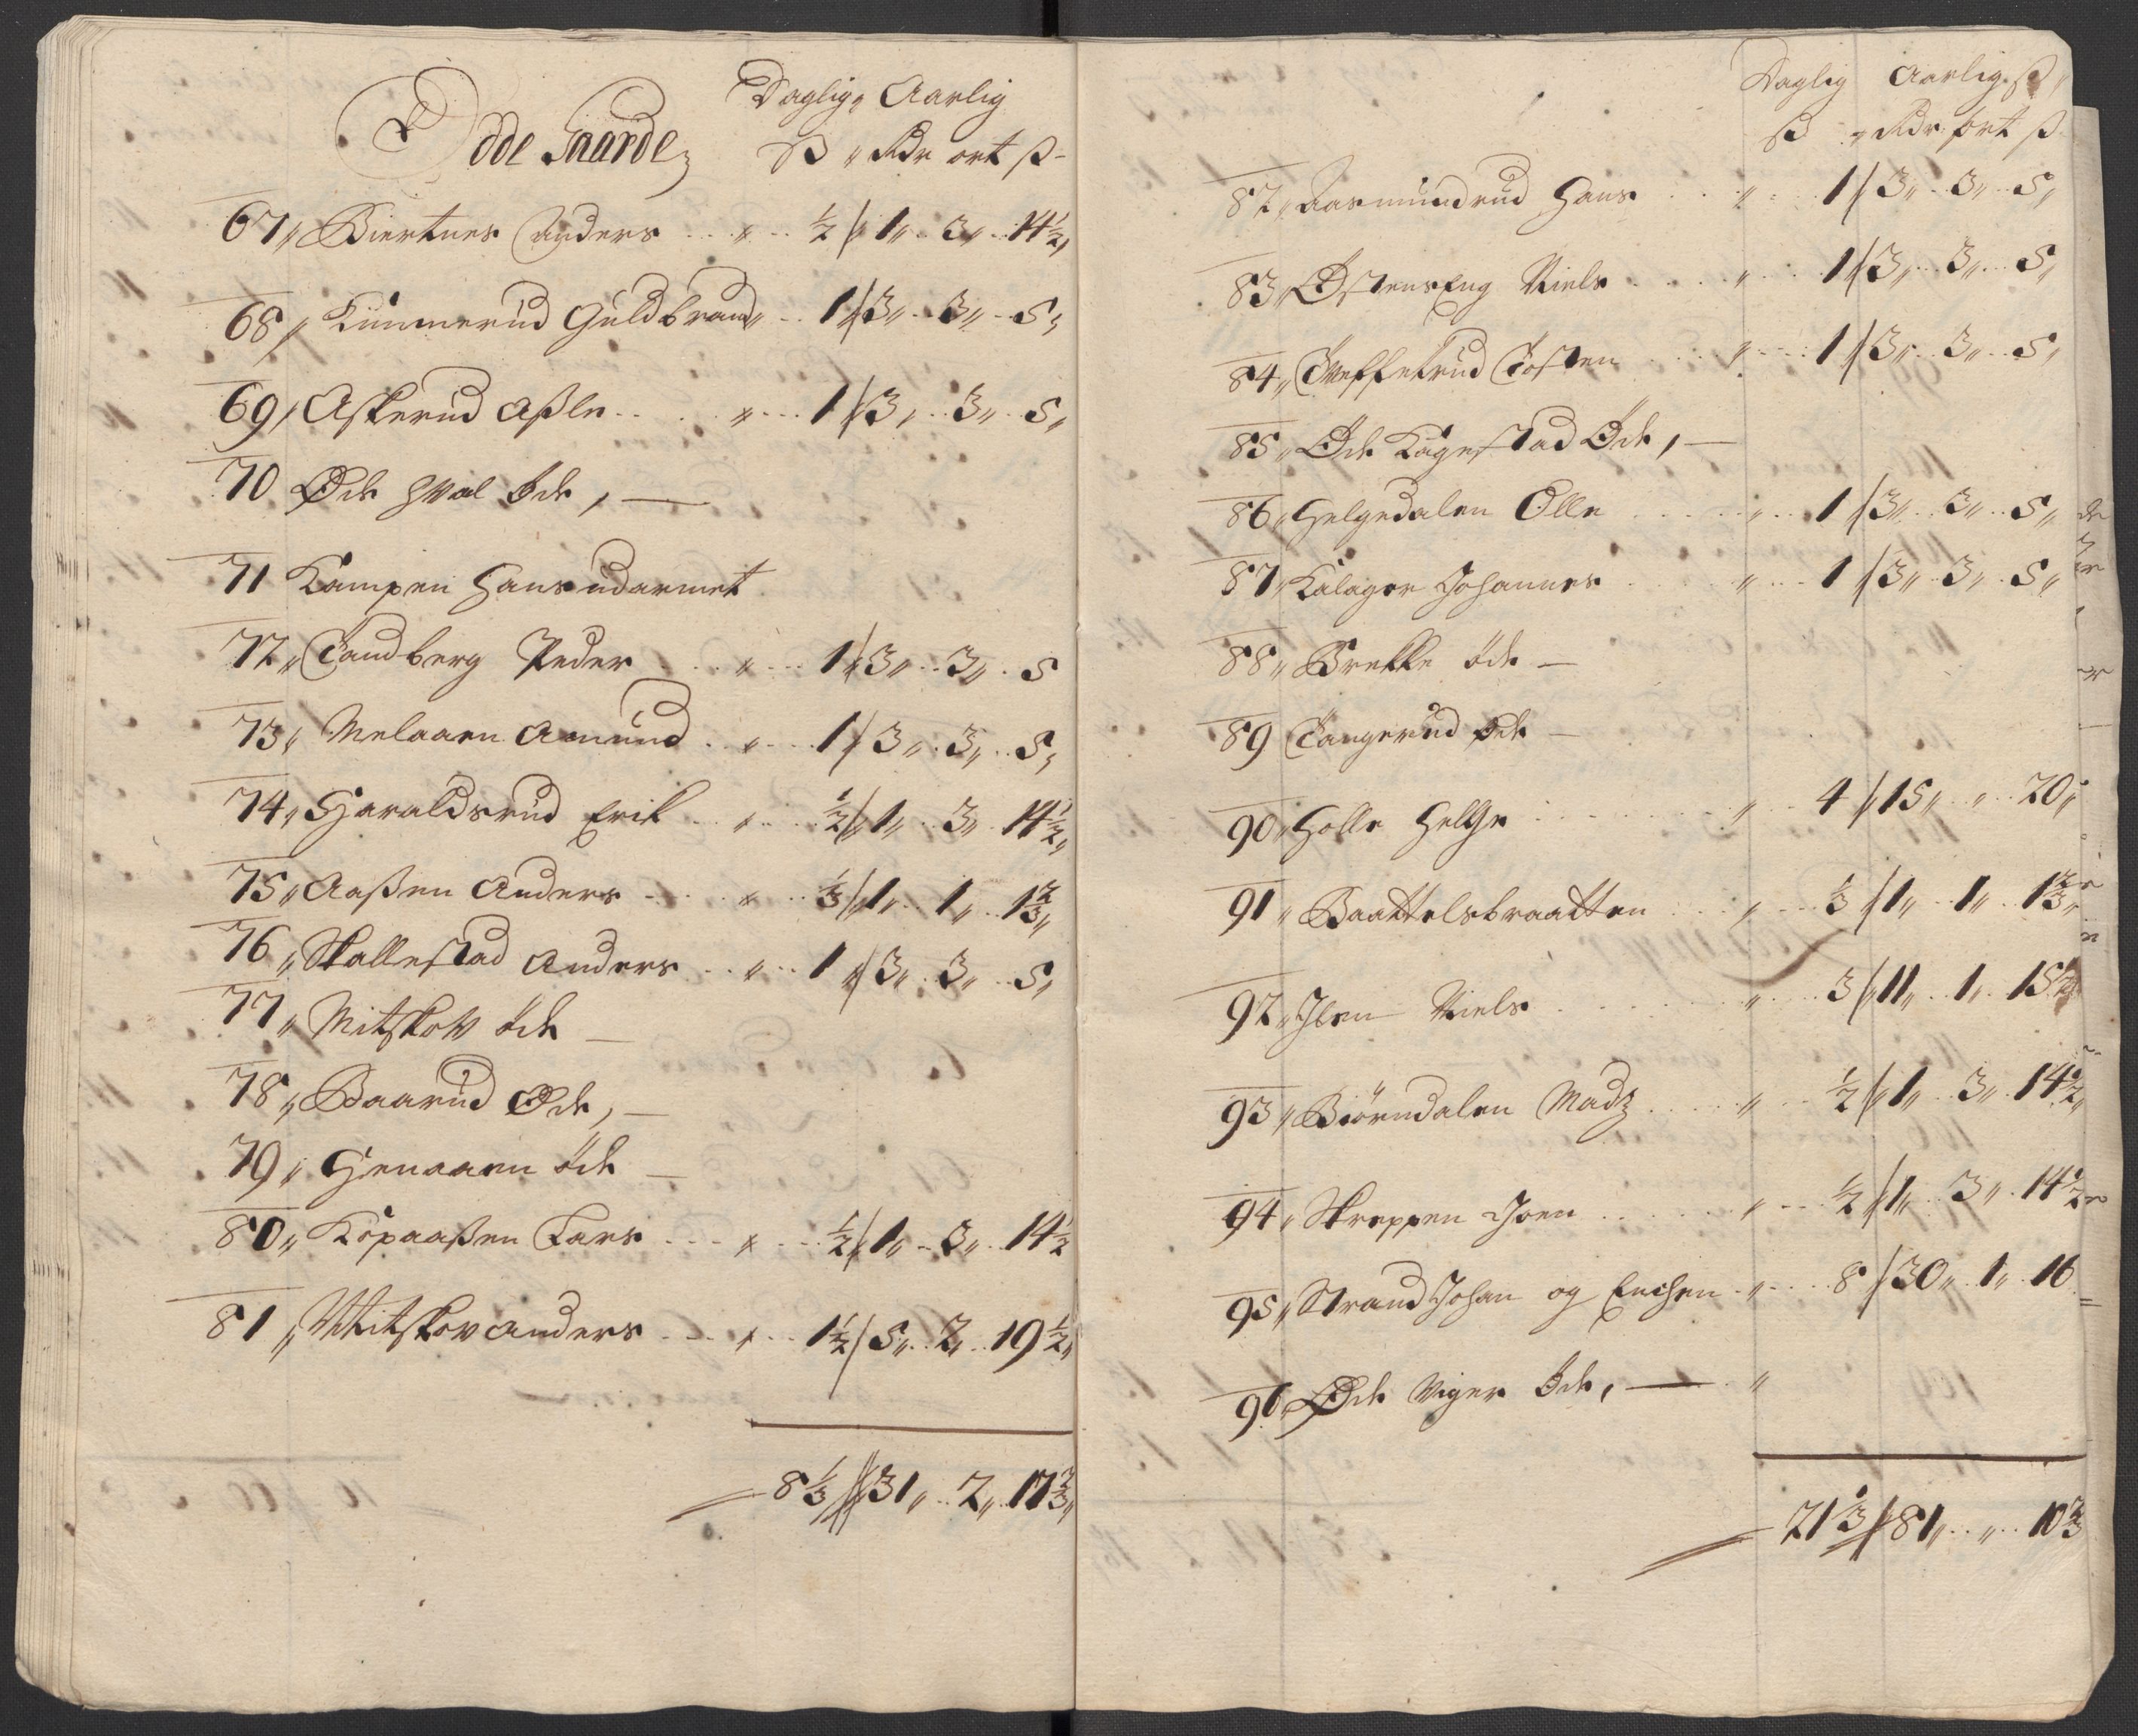 Daglig„ Aarlig
Ödde Gaarde, ß „ Rdr ort ß
67„ Biertnes Anders „ ½ / 1„ 3„ 14½„
68„ Kummerud Guldbrand„ 1 / 3„ 3„ 5„
69„ Askerud Aßle „ 1 / 3„ 3„ 5„
70 Øde Hval öde, —
71 Kampen Hans udarmet
72„ Sandberg Peder „ 1 / 3„ 3„ 5
73„ Melaaen Amund „ 1 / 3„ 3„ 5„
74„ Haraldsrud Erik „ ½ / 1„ 3„ 14½„
75„ Aaßen Anders „ ⅓ / 1„ 1„ 1⅔„
76„ Skallestad Anders „ 1 / 3„ 3„ 5„
77„ Mitskow öde —
78„ Baarud Øde, —
79„ Henaaen öde —
80„ Kopaaßen Lars „ ½ / 1„ 3„ 14½
81„ Mitskov Anders „ 1½ / 5„ 2„ 19½„
8⅓ // 31„ 2„ 17⅔„
Daglig Aarlig ß
ß „ Rdr ort ß
82„ Aasmundrud Hans „ 1 / 3„ 3„ 5„
83„ Østenseng Niels „ 1 / 3„ 3„ 5„
84„ Tosten „ 1 / 3„ 3„ 5„
85„ Øde Kagestad Øde, —
86„ Helgedalen Olle „ 1 / 3„ 3„ 5„
87„ Kalager Johannes „ 1 / 3„ 3„ 5„
88„ Brekke öde —
89 Sangerud øde —
90„ Holle Helge „ 4 / 15„ „ 20„
91„ Baattelsbraatten „ ⅓ / 1„ 1„ 1⅔„
92„ Ilen Niels „ 3 / 11„ 1„ 15
93„ Biörndalen Madz „ ½ / 1„ 3„ 14½„
94„ Skreppen Joen „ ½ / 1„ 3„ 14½
95„ Strand Johan og Enchen „ 8 / 30„ 1„ 16
96„ Øde Viger öde, — „
21⅓ / 81„ „ 10⅔